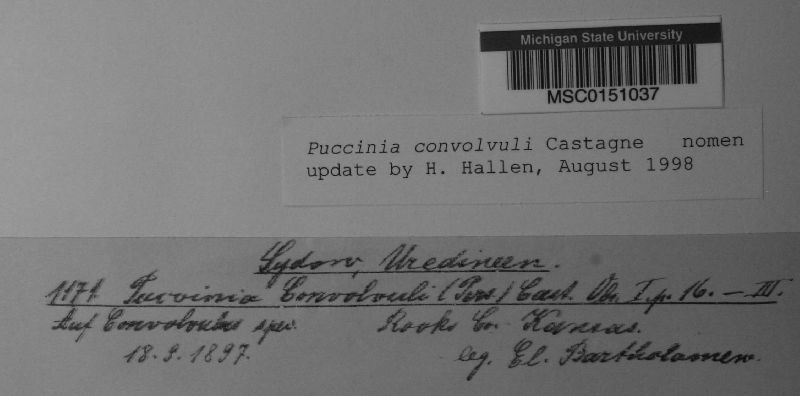 Michigan State University
MSC0151037
Puccinia convolvuli Castagne nomen
update by H. Hallen, August 1998
Sydow, Uredineen.
1171. Puccinia Convolvuli (Pers) Cast. Obs. I. p. 16. — III.
Auf Convolvulus spec. Rooks Co. Kansas.
18.9.1897. leg. El. Bartholomew.